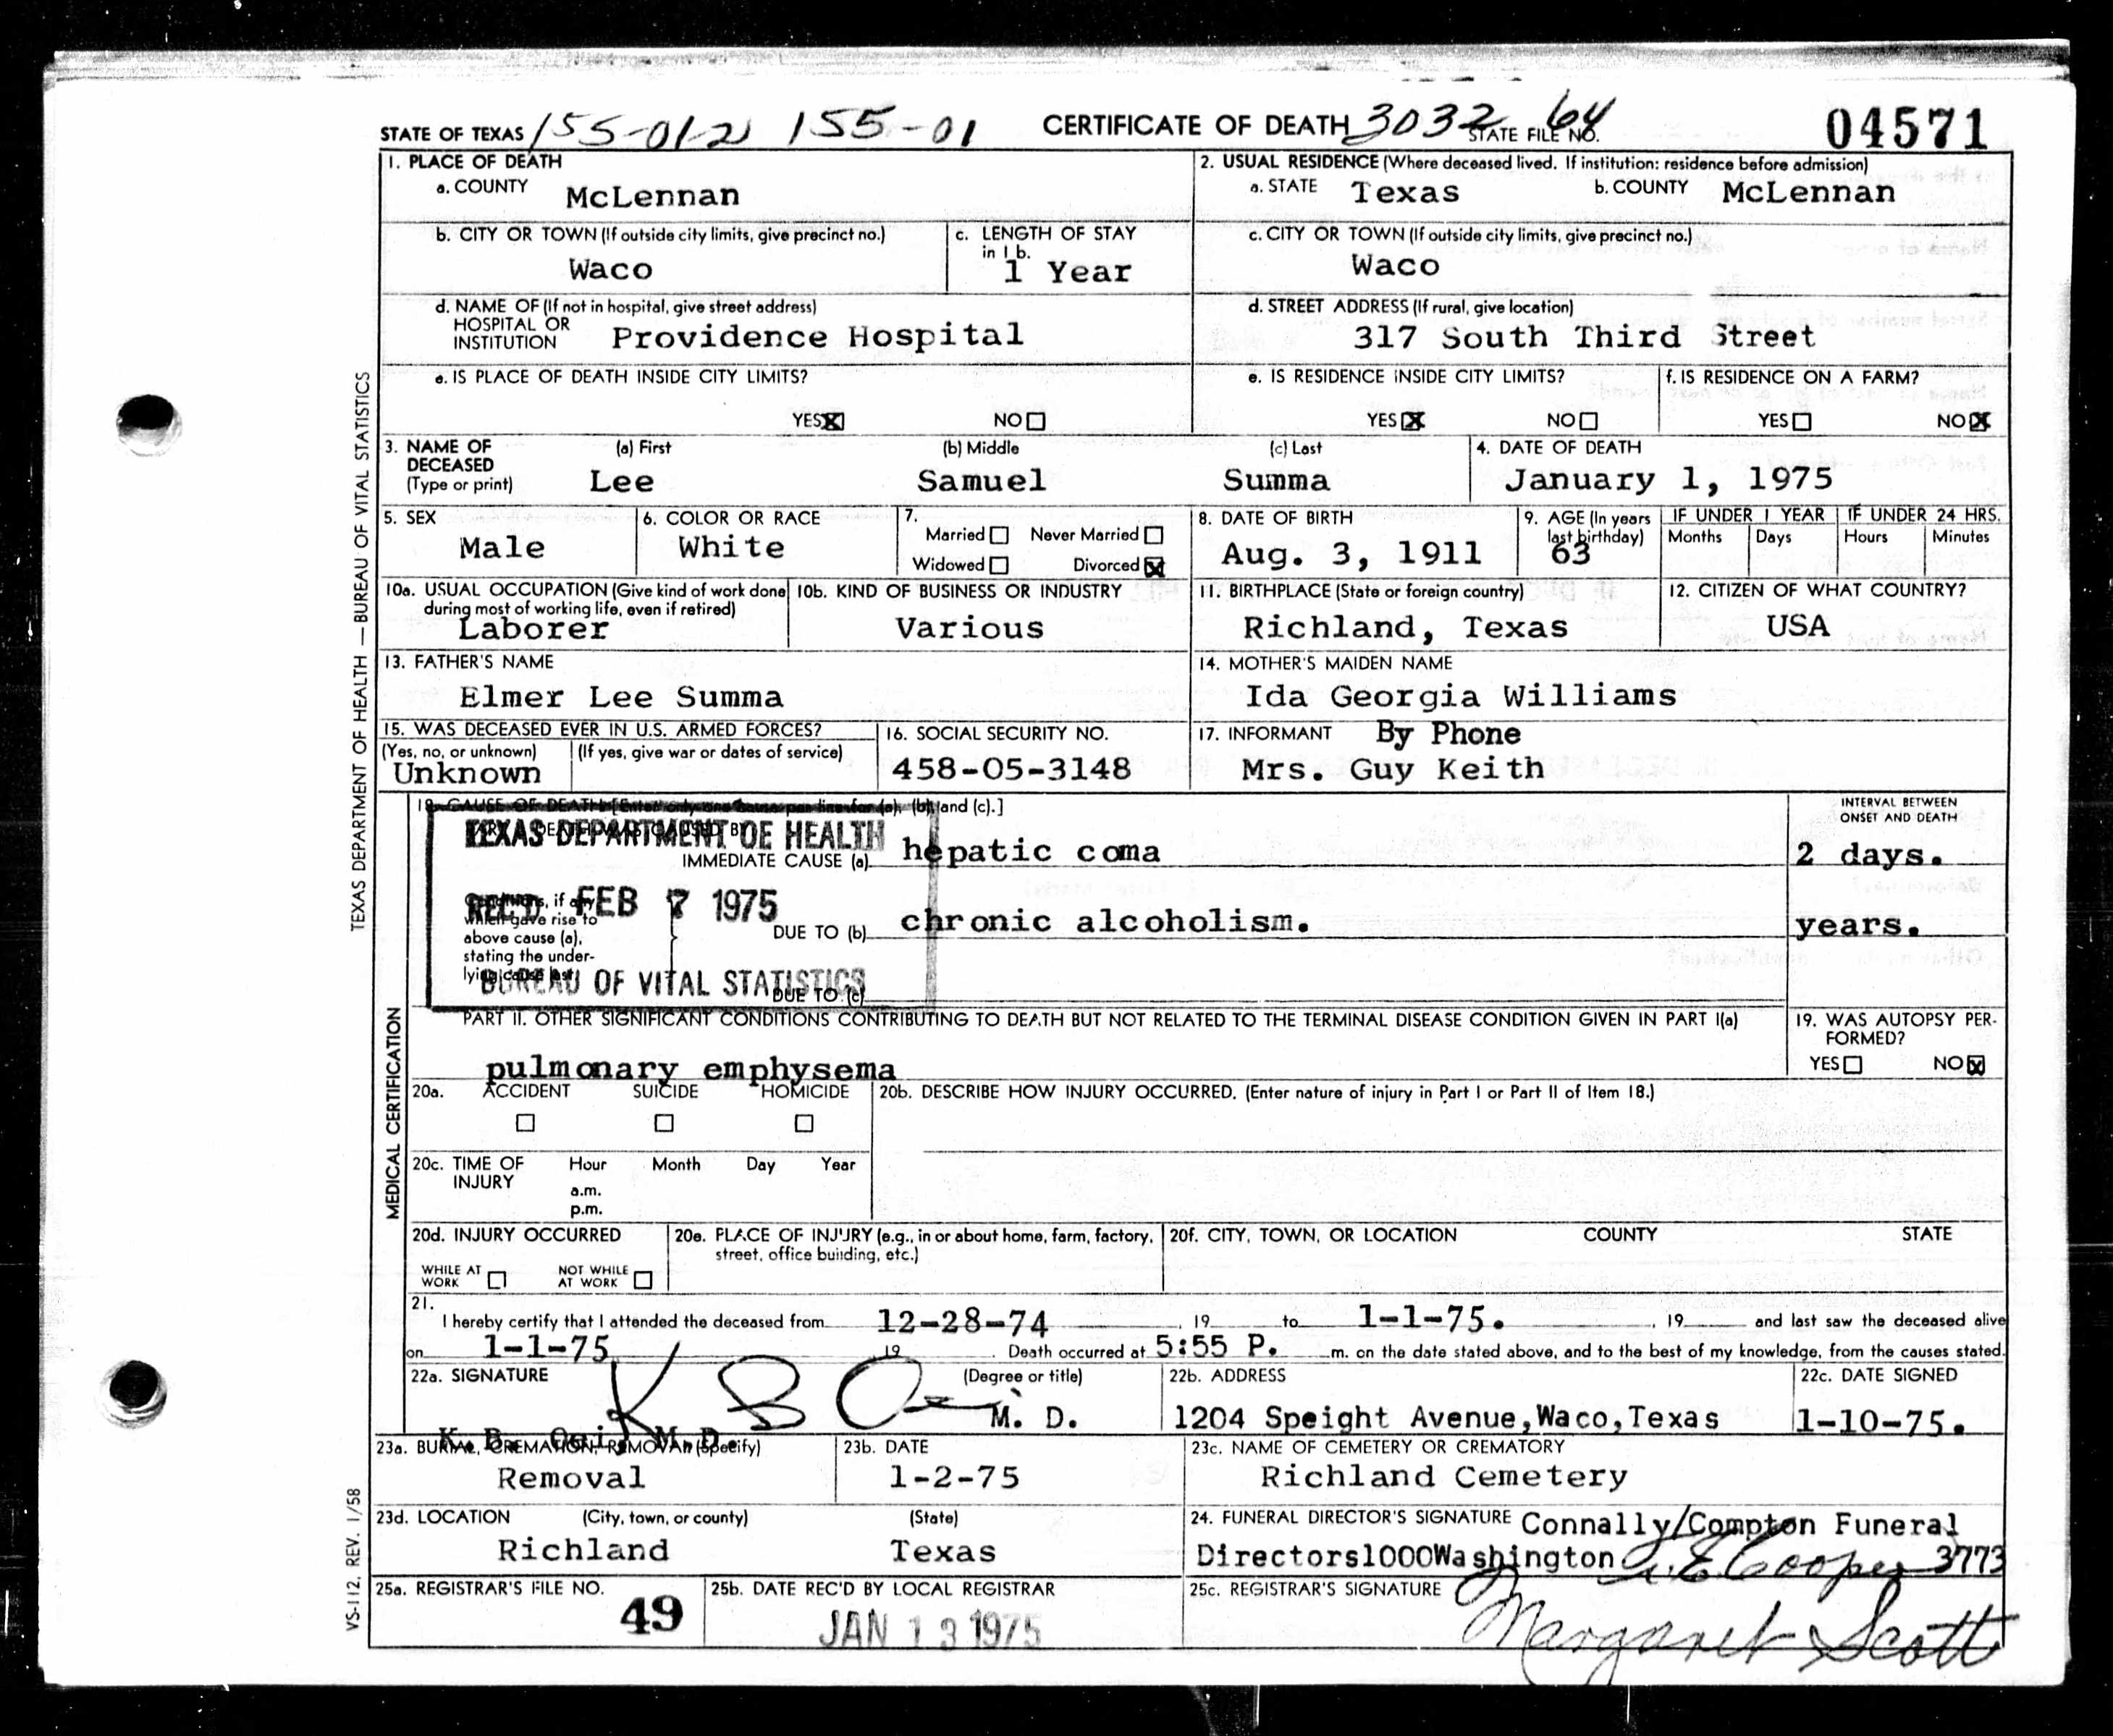 STATE OF TEXAS 155-01-2 155-01 CERTIFICATE OF DEATH 3032 64 STATE FILE NO. 04571
1. PLACE OF DEATH
a. COUNTY McLennan
2. USUAL RESIDENCE (Where deceased lived. If institution: residence before admission)
a. STATE Texas b. COUNTY McLennan
b. CITY OR TOWN (If outside city limits, give precinct no.)
Waco
c. LENGTH OF STAY
in 1 b.
1 Year
c. CITY OR TOWN (If outside city limits, give precinct no.)
Waco
d. NAME OF (If not in hospital, give street address)
HOSPITAL OR
INSTITUTION Providence Hospital
d. STREET ADDRESS (If rural, give location)
317 South Third Street
e. IS PLACE OF DEATH INSIDE CITY LIMITS?
YES X NO
e. IS RESIDENCE INSIDE CITY LIMITS?
YES X NO
f. IS RESIDENCE ON A FARM?
YES NO X
3. NAME OF (a) First (b) Middle (c) Last
DECEASED
(Type or print) Lee Samuel Summa
4. DATE OF DEATH
January 1, 1975
5. SEX
Male
6. COLOR OR RACE
White
7.
Married Never Married
Widowed Divorced X
8. DATE OF BIRTH
Aug. 3, 1911
9. AGE (In years
last birthday)
63
IF UNDER 1 YEAR IF UNDER 24 HRS.
Months Days Hours Minutes
10a. USUAL OCCUPATION (Give kind of work done
during most of working life, even if retired)
Laborer
10b. KIND OF BUSINESS OR INDUSTRY
Various
11. BIRTHPLACE (State or foreign country)
Richland, Texas
12. CITIZEN OF WHAT COUNTRY?
USA
13. FATHER'S NAME
Elmer Lee Summa
14. MOTHER'S MAIDEN NAME
Ida Georgia Williams
15. WAS DECEASED EVER IN U.S. ARMED FORCES?
(Yes, no, or unknown) (If yes, give war or dates of service)
Unknown
16. SOCIAL SECURITY NO.
458-05-3148
17. INFORMANT By Phone
Mrs. Guy Keith
18. CAUSE OF DEATH [Enter only one cause per line for (a), (b), and (c).]
INTERVAL BETWEEN
ONSET AND DEATH
TEXAS DEPARTMENT OF HEALTH
IMMEDIATE CAUSE (a) hepatic coma 2 days.
REC'D FEB 7 1975
Conditions, if any
which gave rise to
above cause (a),
stating the under-
lying cause last.
DUE TO (b) chronic alcoholism. years.
BUREAU OF VITAL STATISTICS
DUE TO (c)
PART II. OTHER SIGNIFICANT CONDITIONS CONTRIBUTING TO DEATH BUT NOT RELATED TO THE TERMINAL DISEASE CONDITION GIVEN IN PART I(a)
pulmonary emphysema
19. WAS AUTOPSY PER-
FORMED?
YES NO X
20a. ACCIDENT SUICIDE HOMICIDE
20b. DESCRIBE HOW INJURY OCCURRED. (Enter nature of injury in Part I or Part II of Item 18.)
20c. TIME OF Hour Month Day Year
INJURY
a.m.
p.m.
20d. INJURY OCCURRED
WHILE AT NOT WHILE
WORK AT WORK
20e. PLACE OF INJURY (e.g., in or about home, farm, factory,
street, office building, etc.)
20f. CITY, TOWN, OR LOCATION COUNTY STATE
21.
I hereby certify that I attended the deceased from 12-28-74, 19 to 1-1-75., 19 and last saw the deceased alive
on 1-1-75 19 . Death occurred at 5:55 P. m. on the date stated above, and to the best of my knowledge, from the causes stated.
22a. SIGNATURE (Degree or title)
K B M. D.
22b. ADDRESS
1204 Speight Avenue,Waco,Texas
22c. DATE SIGNED
1-10-75.
K. B. M. D.
23a. BURIAL, CREMATION, REMOVAL (Specify)
Removal
23b. DATE
1-2-75
23c. NAME OF CEMETERY OR CREMATORY
Richland Cemetery
23d. LOCATION (City, town, or county) (State)
Richland Texas
24. FUNERAL DIRECTOR'S SIGNATURE Connally/Compton Funeral
Directors1000Washington Cooper 3773
25a. REGISTRAR'S FILE NO.
49
25b. DATE REC'D BY LOCAL REGISTRAR
JAN 13 1975
25c. REGISTRAR'S SIGNATURE
Margaret Scott
TEXAS DEPARTMENT OF HEALTH — BUREAU OF VITAL STATISTICS
MEDICAL CERTIFICATION
VS-112, REV. 1/58